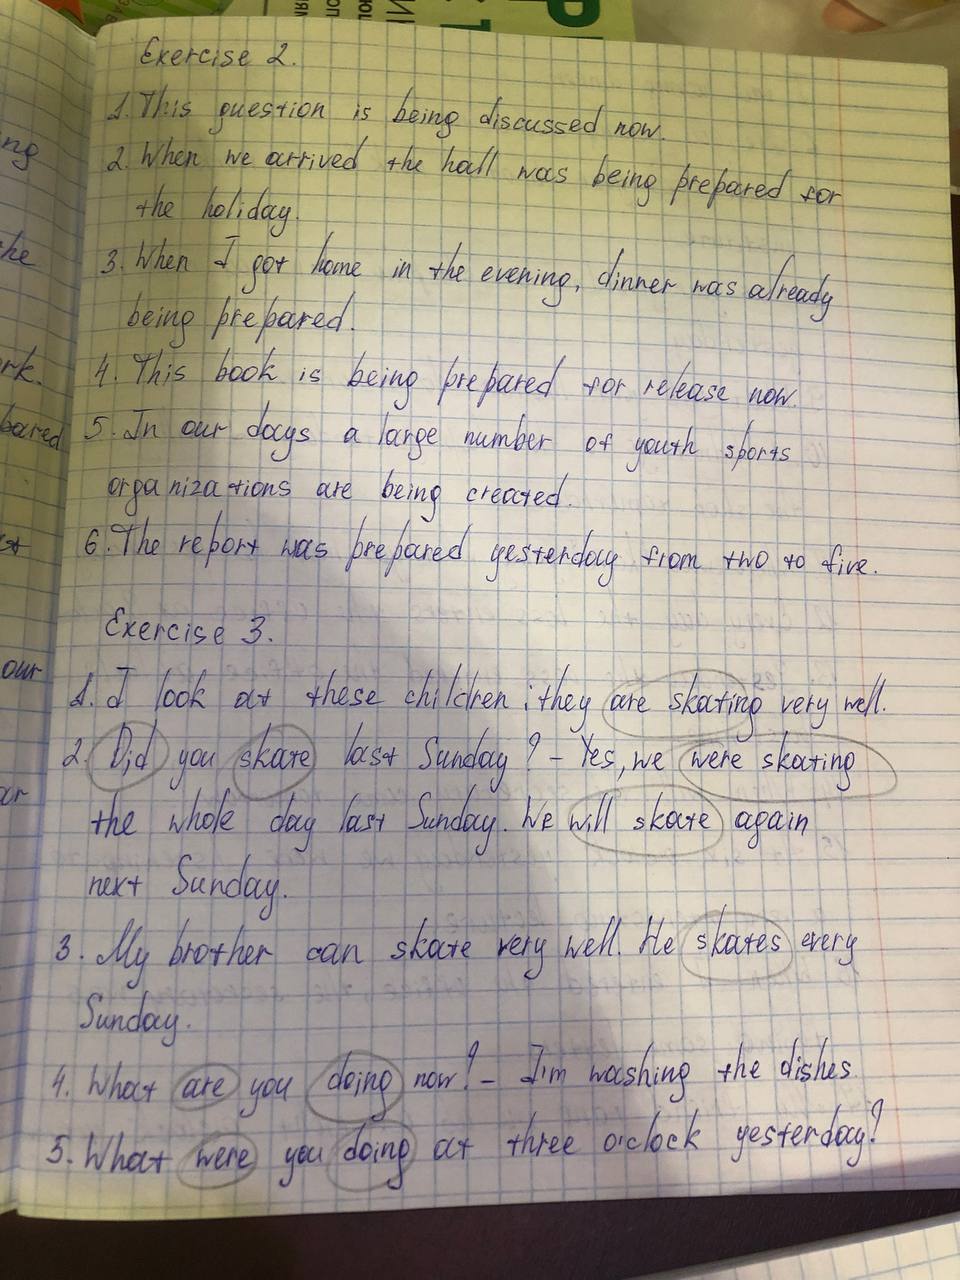 Exercise 2.
1. This question is being discussed now.
2. When we arrived the hall was being prepared for
the holiday.
3. When I got home in the evening, dinner was already
being prepared.
4. This book is being prepared for release now.
5. In our days a large number of youth sports
organizations are being created.
6. The report was prepared yesterday from two to five.
Exercise 3.
1. I look at these children: they are skating very well.
2. Did you skate last Sunday? - Yes, we were skating
the whole day last Sunday. We will skate again
next Sunday.
3. My brother can skate very well. He skates every
Sunday.
4. What are you doing now? - I'm washing the dishes.
5. What were you doing at three o'clock yesterday?
ng
he
rk.
bared
our